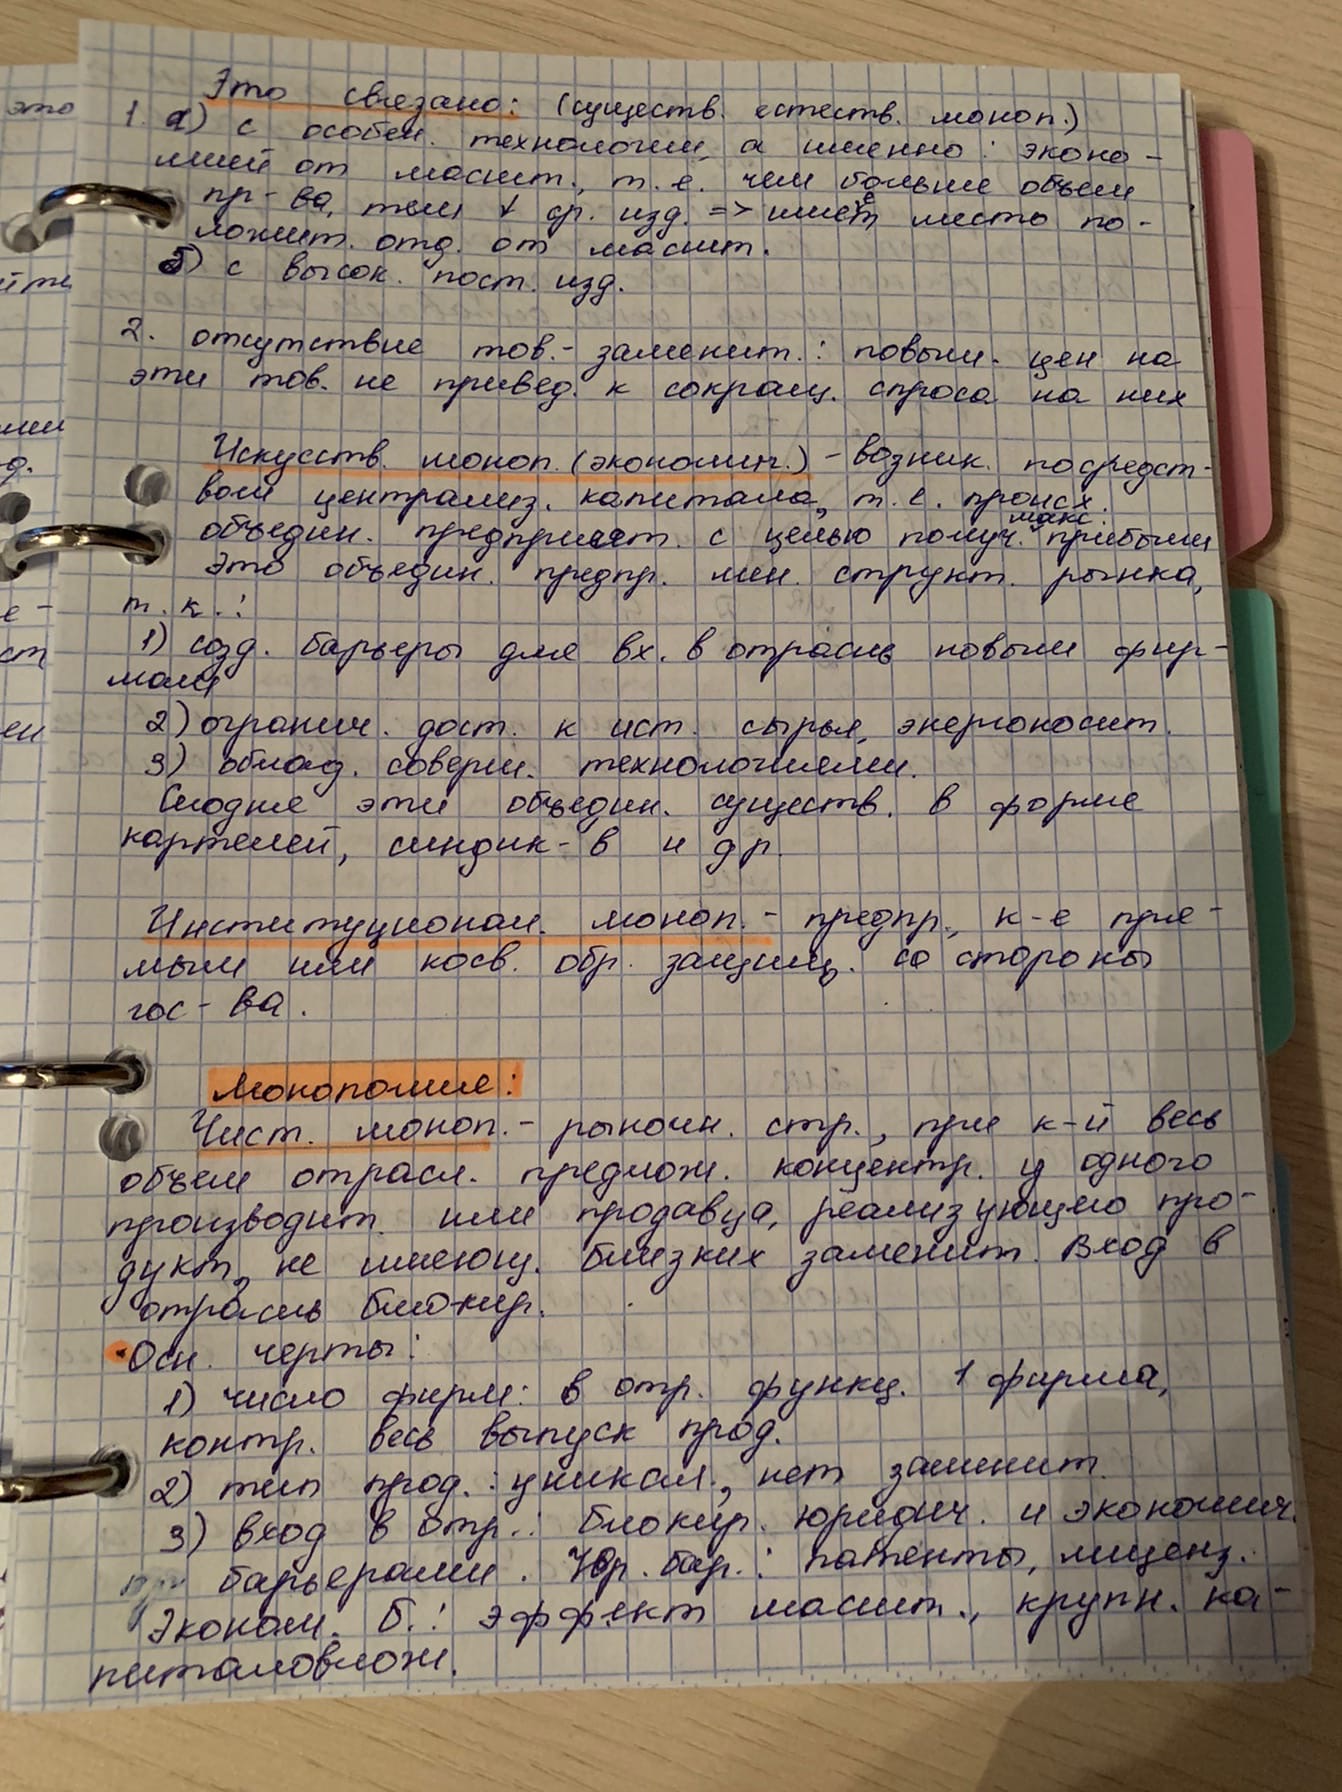 Это связано: (существ. естеств. моноп.)
1. а) с особен. технологии, а именно: эконо-
мией от масшт., т.е. чем больше объем
пр-ва, тем ↓ ср. изд. => имеет место по-
ложит. отд. от масшт.
б) с высок. пост. изд.
2. отсутствие тов.-заменит.: повыш. цен на
эти тов. не привед. к сокращ. спроса на них
Искусств. моноп. (экономич.) - возник. посредст-
вом централиз. капитала, т.е. происх.
объедин. предприят. с целью получ. макс. прибыли
Это объедин. предпр. мен. структ. рынка,
т.к.:
1) созд. барьеры для вх. в отрасль новым фир-
мам
2) огранич. дост. к ист. сырья, энергоносит.
3) облад. соверш. технологиями.
Сегодня эти объедин. существ. в форме
картелей, синдик-в и др.
Институционал. моноп. - предпр., к-е пря-
мым или косв. обр. защищ. со стороны
гос-ва.
Монополия:
Чист. моноп. - рыночн. стр., при к-й весь
объем отрасл. предлож. концентр. у одного
производит. или продавца, реализующего про-
дукт, не имеющ. близких заменит. Вход в
отрасль блокир.
• Осн. черты:
1) число фирм: в отр. функц. 1 фирма,
контр. весь выпуск прод.
2) тип прод.: уникал., нет заменит.
3) вход в отр.: блокир. юридич. и экономич.
барьерами. Юр. бар.: патенты, лиценз.
Эконом. б.: эффект масшт., крупн. ка-
питаловлож.